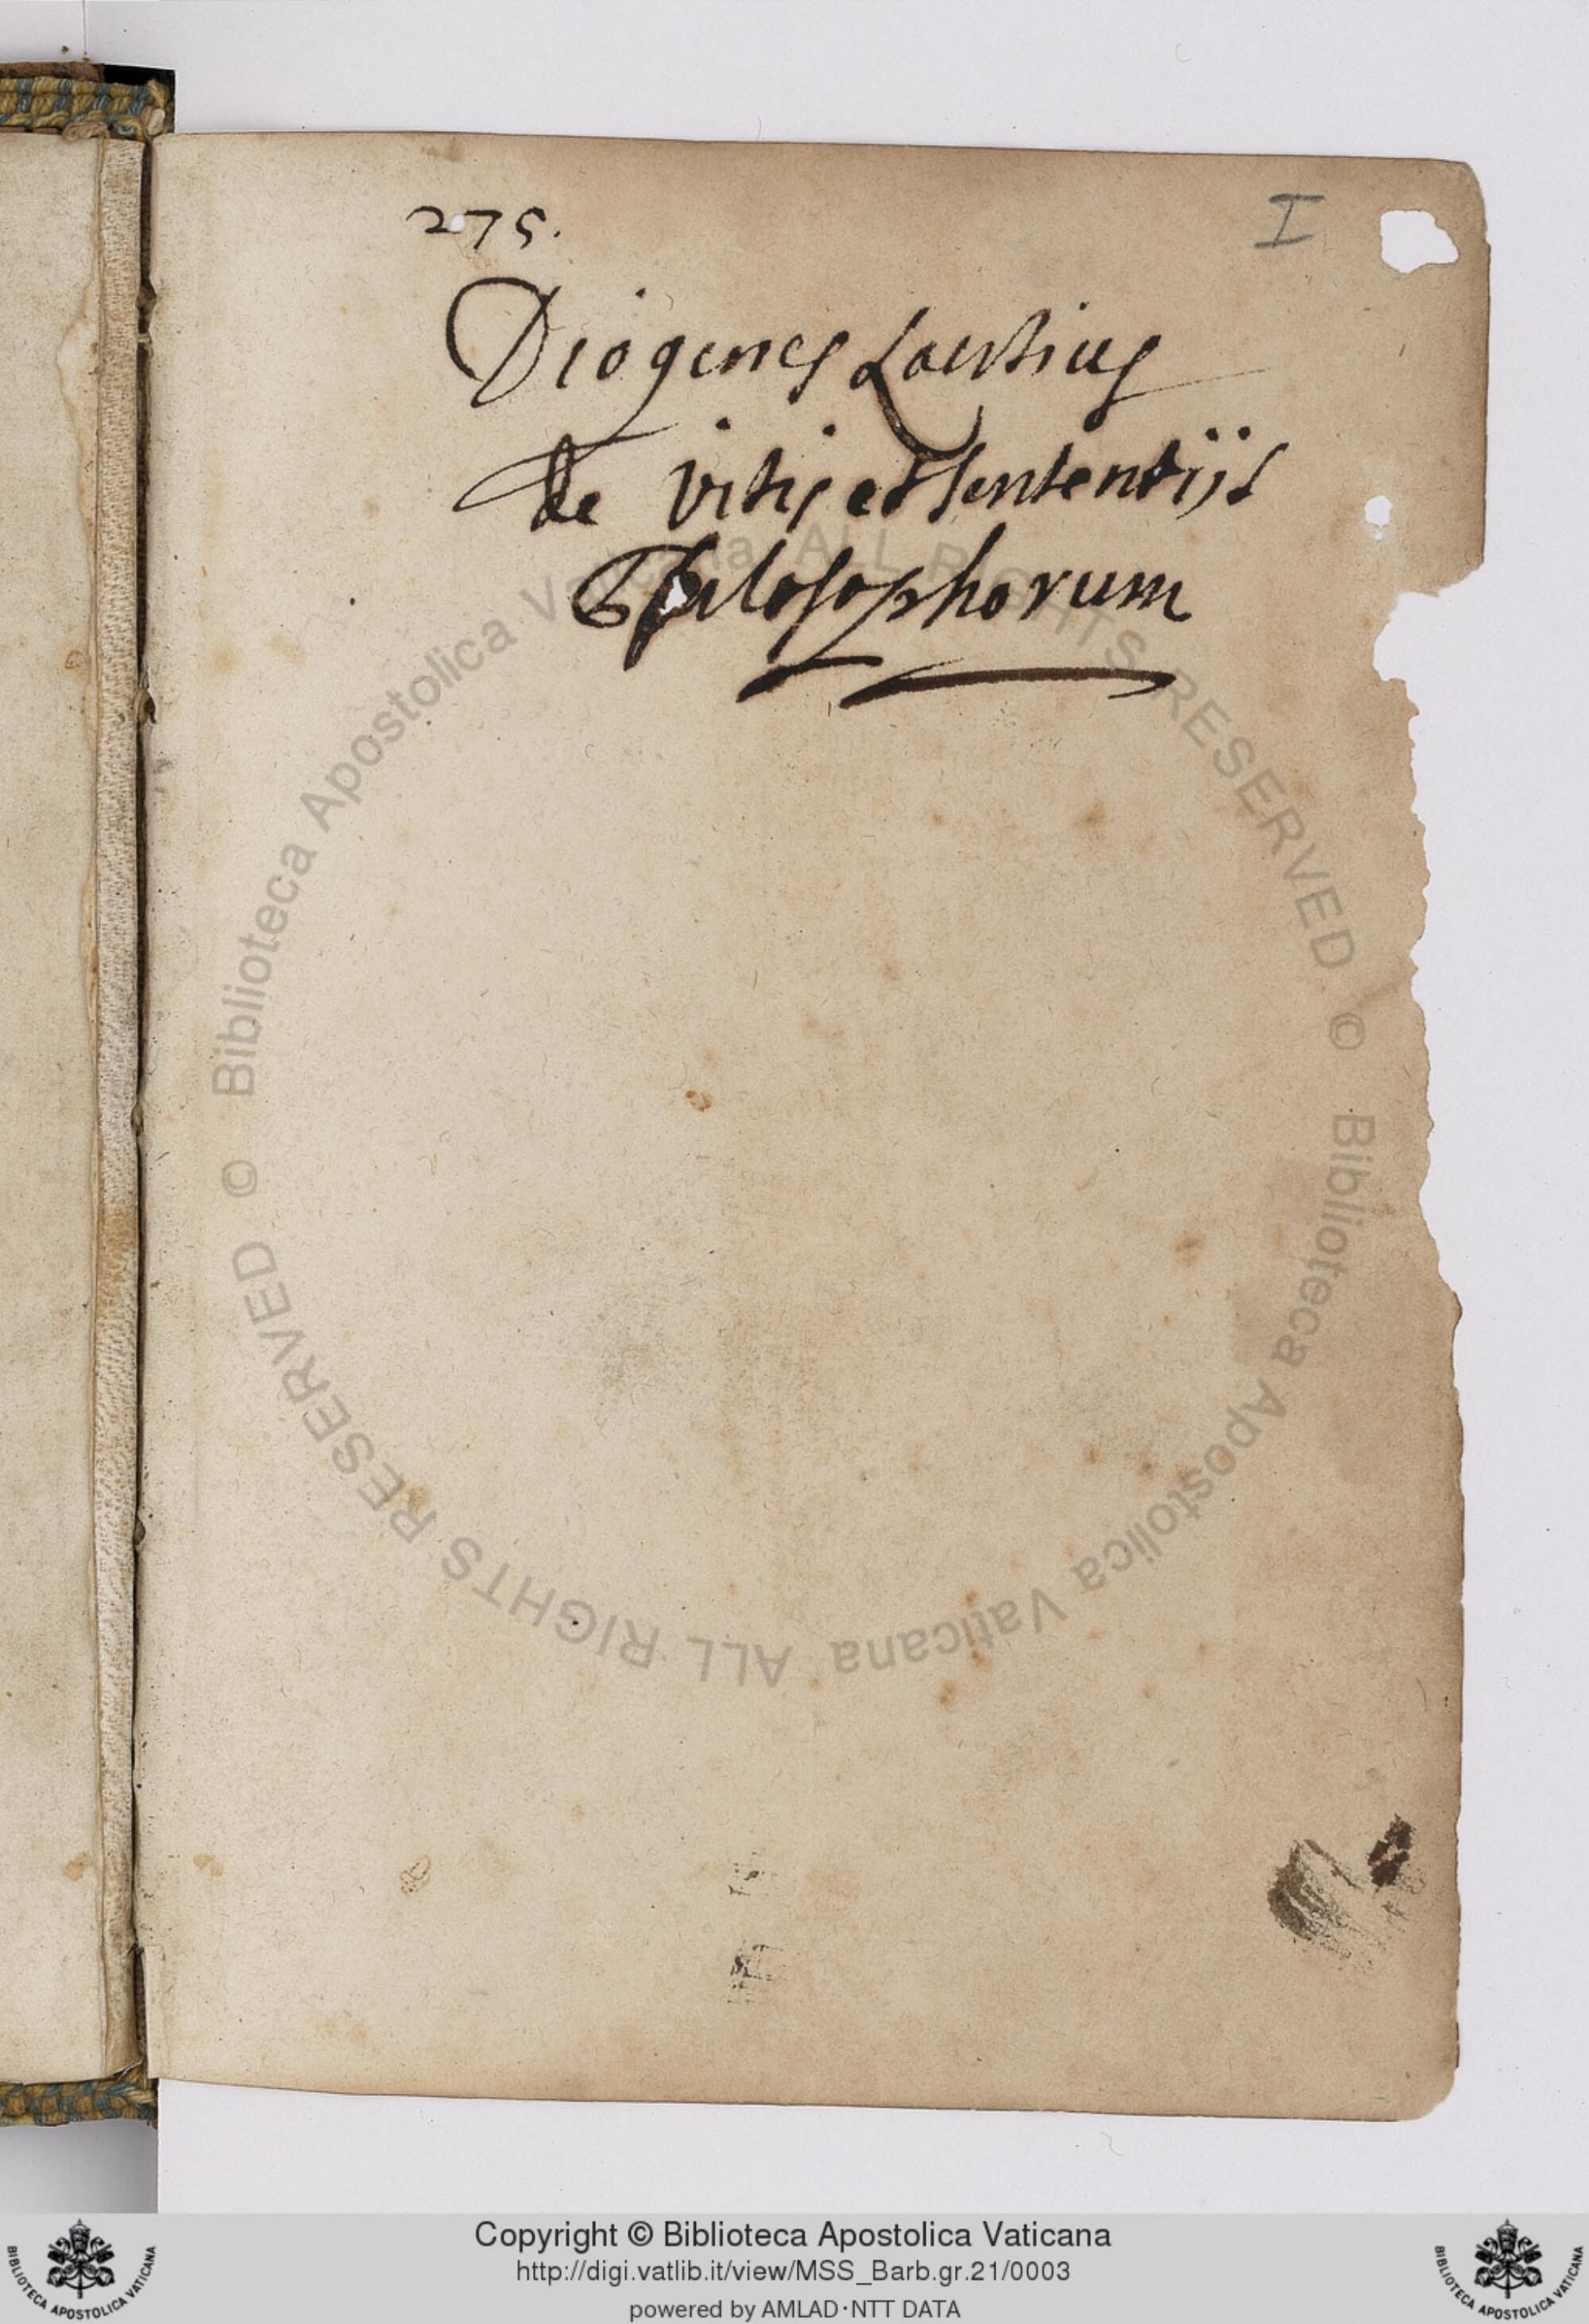 275.
I
Diogenes Laertius
de vitis et sententijs
Philosophorum
© Biblioteca Apostolica Vaticana ALL RIGHTS RESERVED
© Biblioteca Apostolica Vaticana ALL RIGHTS RESERVED
Copyright © Biblioteca Apostolica Vaticana
http://digi.vatlib.it/view/MSS_Barb.gr.21/0003
powered by AMLAD·NTT DATA
BIBLIOTECA APOSTOLICA VATICANA
BIBLIOTECA APOSTOLICA VATICANA